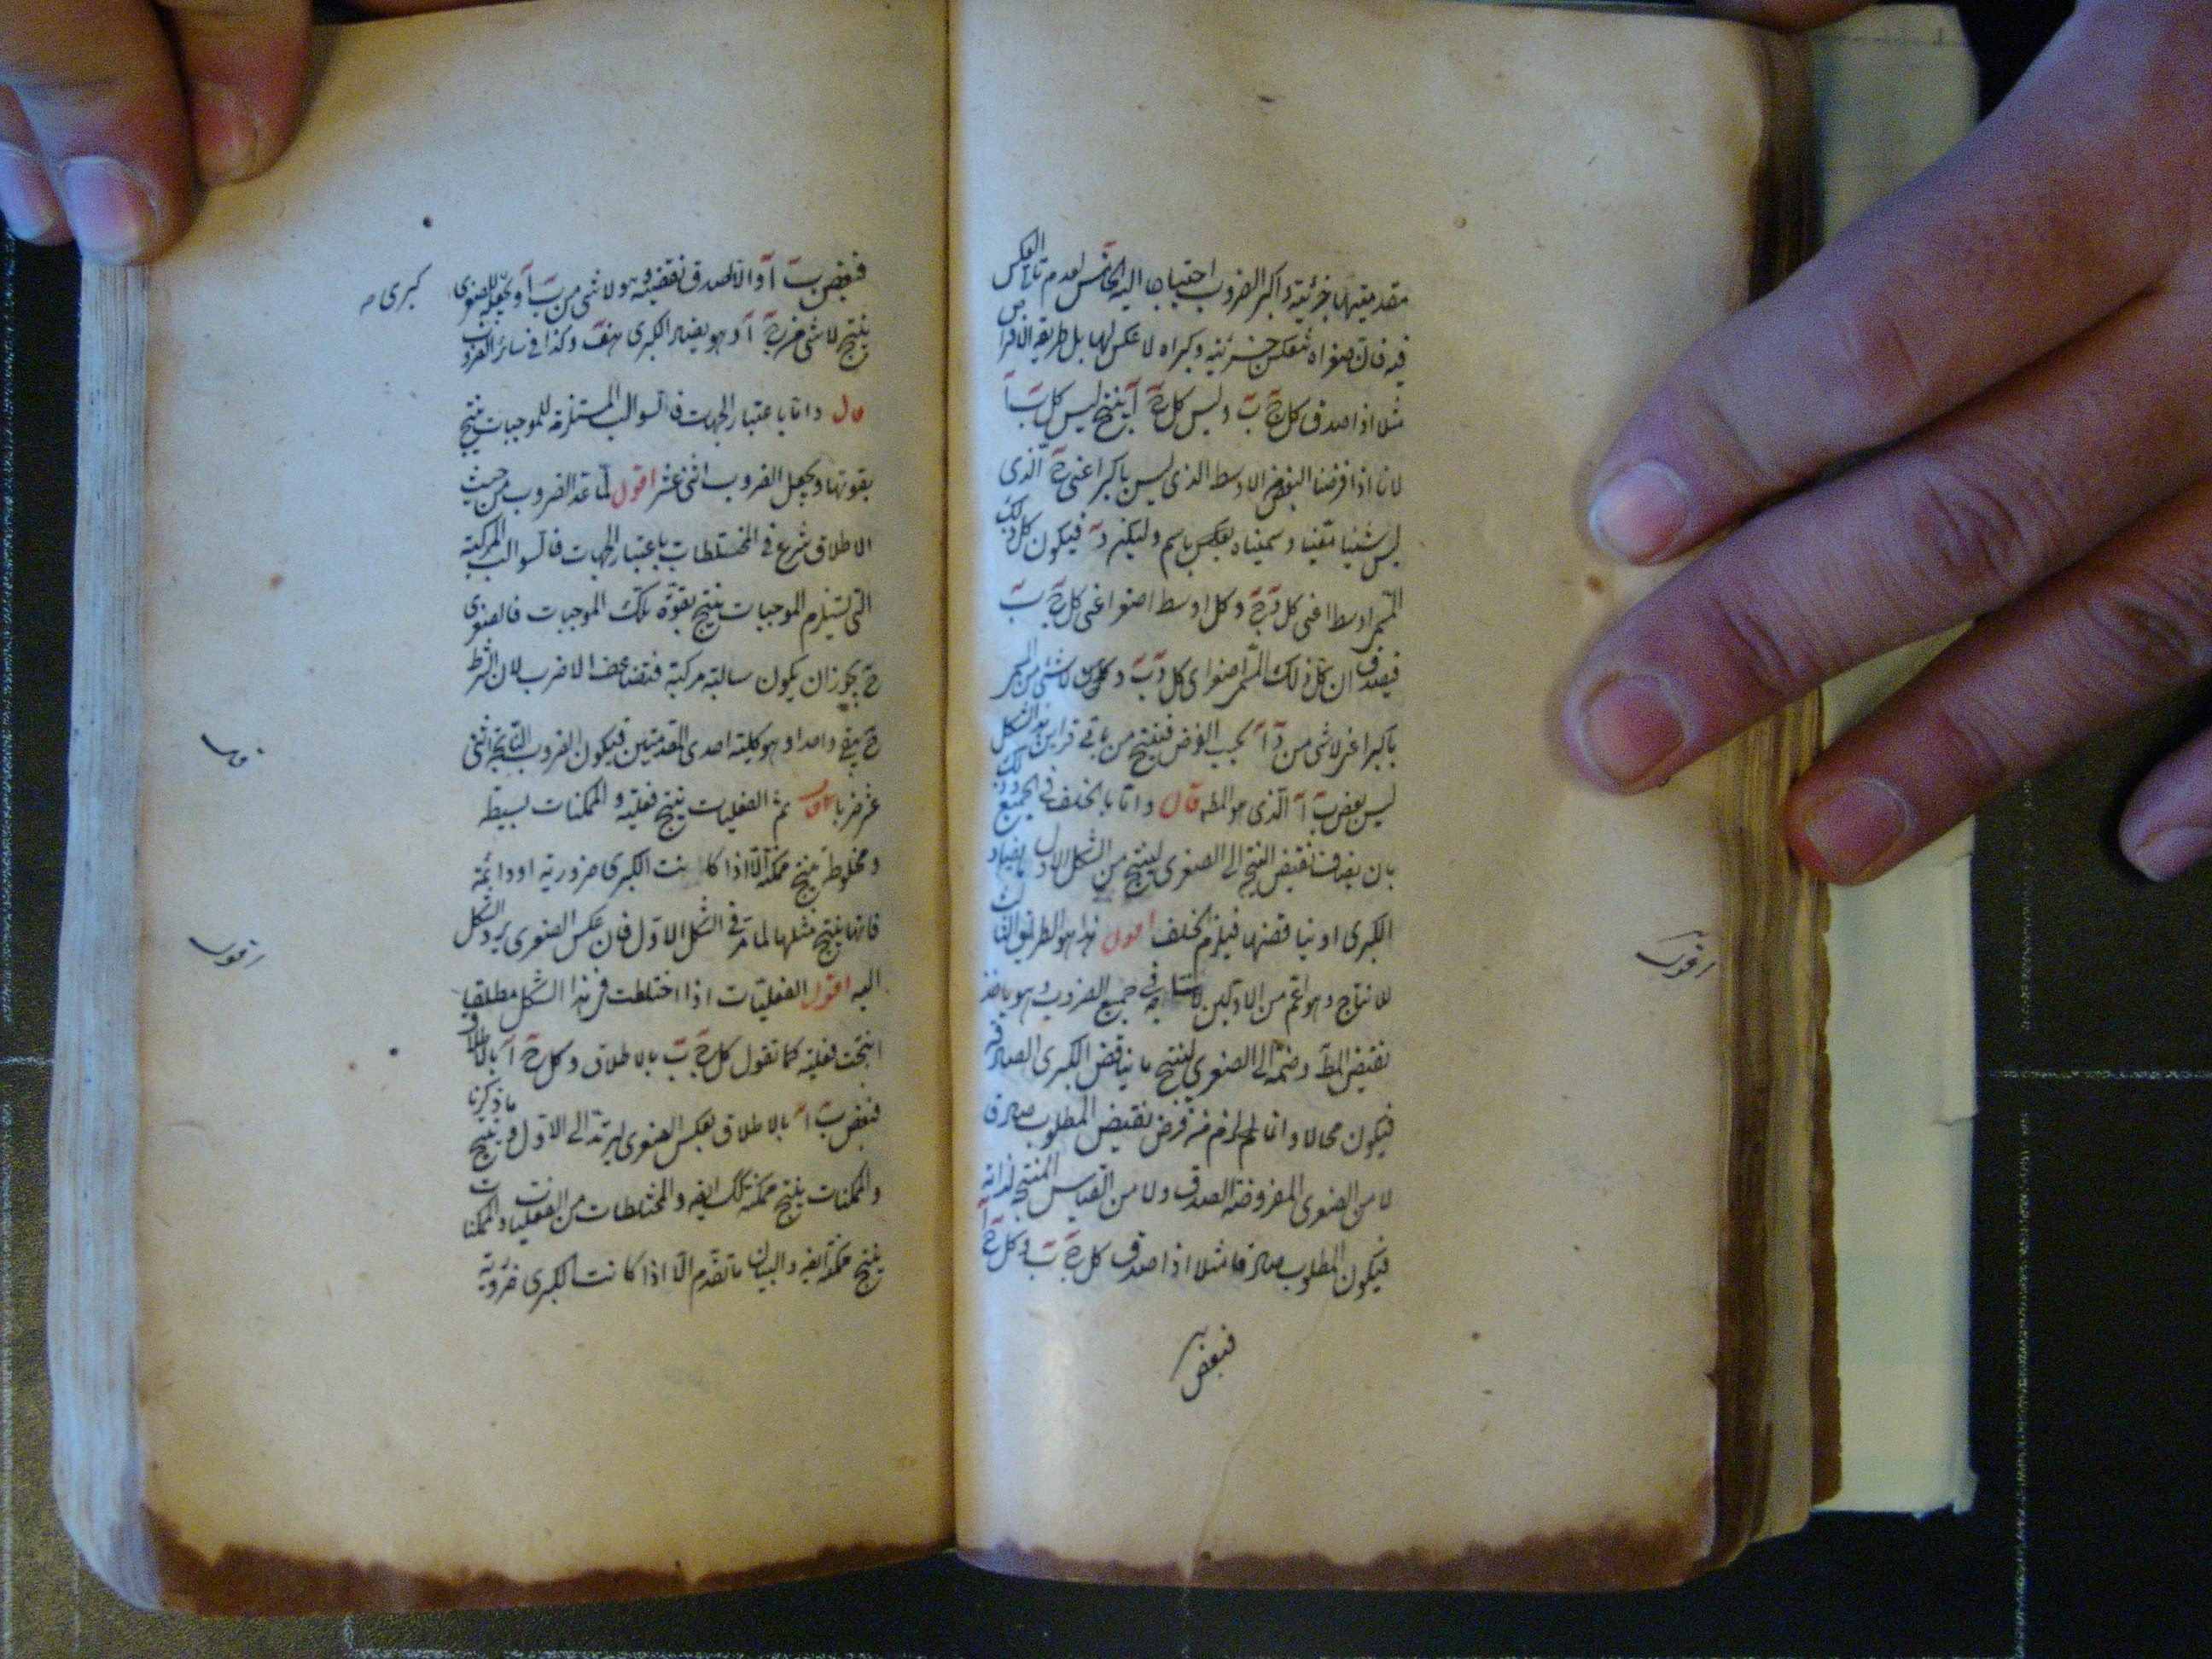 مقدمتيها جزئية واكبر الضروب احتياجا اليه الخامس لعدم تأتي العكس
فيه فان صغراه تنعكس جزئية وكبراه لا عكس لها بل طريقه الافتراض
مثلا اذا صدق كل ج ب وليس كل ج آ ينتج ليس كل ب آ
لانا اذا فرضنا البعض الاوسط الذي ليس باكبر اعني ج الذي
ليس شيئا معينا وسميناه باسم وليكن د فيكون كل ذلك
المسمى اوسط اعني كل د ج وكل اوسط اصغر اعني كل ج ب
فيصدق ان كل ذلك المسمى اصغر اى كل د ب ولا شئ من المسمى
باكبر اعني لا شئ من د آ بحسب الفرض فينتج من باقي قراين هذا الشكل
ليس بعض ب آ الذي هو المط قال واما بالخلف في الجميع وذلك
بان يضاف نقيض النتيجة الى الصغرى لينتج من الشكل الاول ما يضاد
الكبرى او يناقضها فيلزم الخلف اقول هذا هو الطريق الثالث
للانتاج وهو اعم من الاولين في جميع الضروب وهو ياخذ
نقيض المط وضمه الى الصغرى لينتج ما يناقض الكبرى الصادقة
فيكون محالا وانما لزم من فرض نقيض المطلوب صادق
لا من الصغرى المفروضة الصدق ولا من القياس المنتج لذاته
فيكون المطلوب صادقا مثلا اذا صدق كل ج ب وكل ج آ
فبعض
اقول
فبعض ب آ والا لصدق نقيضه وهو لا شئ من ب آ ونجعله للصغرى
كبرى
ينتج لا شئ من ج آ وهو يضاد الكبرى هف وكذا في سائر الضروب
قال واما باعتبار الجهات فالسوالب المستلزمة للموجبات ينتج
بقوتها ويجعل الضروب اثنى عشر اقول لما عد الضروب من حيث
الاطلاق شرع في المختلطات باعتبار الجهات فالسوالب المركبة
التي تستلزم الموجبات ينتج بقوة تلك الموجبات فالصغرى
ح يجوز ان يكون سالبة مركبة الاضرب لان الشرط
ح يبقى واحدا وهو كلية احدى المقدمتين فيكون الضروب الناتجة اثنى
عشر ضربا قال ثم الفعليات ينتج فعلية والممكنات بسيطة
ومخلوطة ينتج ممكنة الا اذا كانت الكبرى ضرورية او دائمة
فانها ينتج مثلها لما مر في الشكل الاول فان عكس الصغرى يرد الشكل
اليه اقول الفعليات اذا اختلطت في هذا الشكل مطلقا
انتجت فعلية كما تقول كل ج ب بالاطلاق وكل ج آ بالاطلاق
فبعض ب آ بالاطلاق بعكس الصغرى ليرتد الى الاول وينتج ما ذكرنا
والممكنات ينتج ممكنة كذلك ايضا والمختلطات من الفعليات والممكنات
ينتج ممكنة ايضا والبيان ما تقدم الا اذا كانت الكبرى ضرورية
قال
اقول